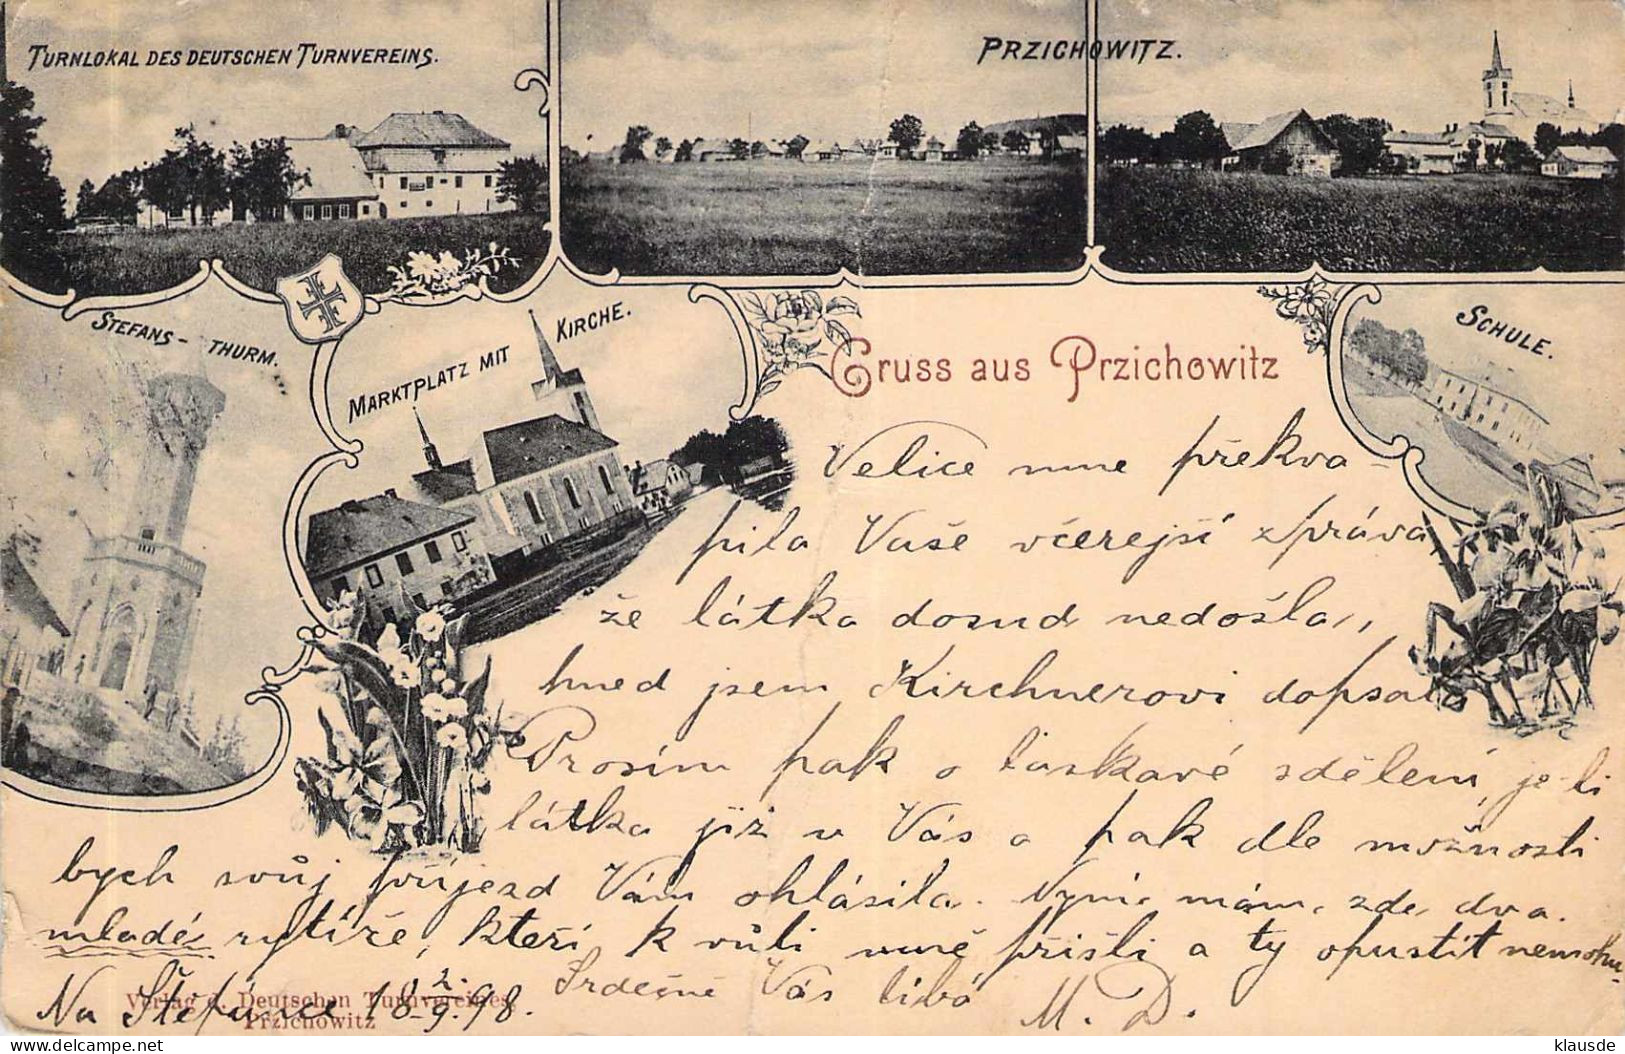 TURNLOKAL DES DEUTSCHEN TURNVEREINS.
PRZICHOWITZ.
STEFANS - THURM.
MARKTPLATZ MIT KIRCHE.
SCHULE.
Gruss aus Przichowitz
Velice mne překva-
pila Vaše včerejší zpráva,
že látka dosud nedošla,
hned jsem Kirchnerovi dopsala
Prosím pak o laskavé sdělení, je-li
látka již u Vás a pak dle možnosti
bych svůj příjezd Vám ohlásila. Nyní mám zde dva
mladé rytíře, kteří k vůli mně přišli a ty opustit nemohu.
Srdečně Vás líbá
M. D.
Na Štěpánce 18 9. 98.
Verlag d. Deutschen Turnvereines,
Przichowitz
klausde
delcampe.net